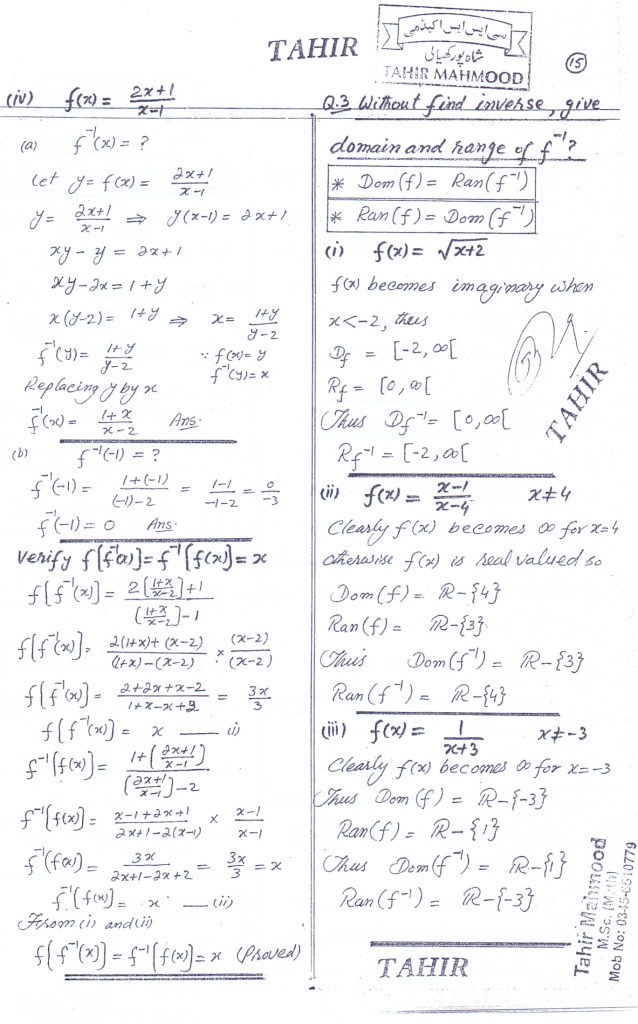 TAHIR
سی ایس ایس اکیڈمی
شاہ پور کھیالی
TAHIR MAHMOOD
15
(iv) f(x) = 2x+1/x-1
(a) f⁻¹(x) = ?
Let y = f(x) = 2x+1/x-1
y = 2x+1/x-1 ⇒ y(x-1) = 2x+1
xy - y = 2x+1
xy - 2x = 1+y
x(y-2) = 1+y ⇒ x = 1+y/y-2
f⁻¹(y) = 1+y/y-2 ∵ f(x)=y
f⁻¹(y)=x
Replacing y by x
f⁻¹(x) = 1+x/x-2 Ans.
(b) f⁻¹(-1) = ?
f⁻¹(-1) = 1+(-1)/(-1)-2 = 1-1/-1-2 = 0/-3
f⁻¹(-1) = 0 Ans.
Verify f[f⁻¹(x)] = f⁻¹[f(x)] = x
f[f⁻¹(x)] = 2[1+x/x-2]+1/[1+x/x-2]-1
f[f⁻¹(x)] = 2(1+x)+(x-2)/(1+x)-(x-2) × (x-2)/(x-2)
f[f⁻¹(x)] = 2+2x+x-2/1+x-x+2 = 3x/3
f[f⁻¹(x)] = x — (i)
f⁻¹[f(x)] = 1+[2x+1/x-1]/[2x+1/x-1]-2
f⁻¹[f(x)] = x-1+2x+1/2x+1-2(x-1) × x-1/x-1
f⁻¹(f(x)) = 3x/2x+1-2x+2 = 3x/3 = x
f⁻¹[f(x)] = x — (ii)
From (i) and (ii)
f[f⁻¹(x)] = f⁻¹[f(x)] = x (Proved)
Q.3 Without find inverse, give
domain and range of f⁻¹?
* Dom(f) = Ran(f⁻¹)
* Ran(f) = Dom(f⁻¹)
(i) f(x) = √x+2
f(x) becomes imaginary when
x<-2, thus
Df = [-2, ∞[
Rf = [0, ∞[
TAHIR
Thus Df⁻¹ = [0, ∞[
Rf⁻¹ = [-2, ∞[
(ii) f(x) = x-1/x-4 x≠4
Clearly f(x) becomes ∞ for x=4
otherwise f(x) is real valued so
Dom(f) = R-{4}
Ran(f) = R-{3}
Thus Dom(f⁻¹) = R-{3}
Ran(f⁻¹) = R-{4}
(iii) f(x) = 1/x+3 x≠-3
Clearly f(x) becomes ∞ for x=-3
Thus Dom(f) = R-{-3}
Ran(f) = R-{1}
Thus Dom(f⁻¹) = R-{1}
Ran(f⁻¹) = R-{-3}
TAHIR
Tahir Mahmood
M.Sc. (Math)
Mob No: 0345-6510779